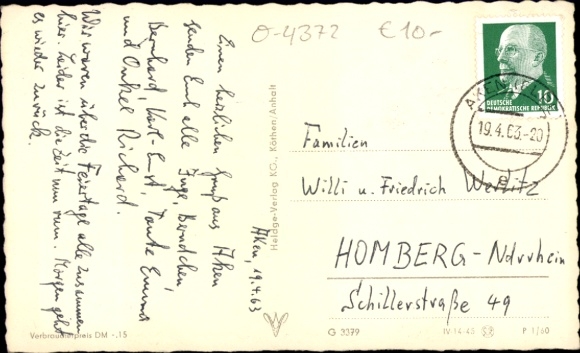 O-4372 €10,-
Einen herzlichen Gruß aus Aken
senden Euch alle Inge, Berndchen,
Bernhard, Karl-Ernst, Tante Emma
und Onkel Richard.
Wir waren über die Feiertage alle zusammen
hier. Leider ist die Zeit nun rum. Morgen geht
es wieder zurück.
Aken, 19.4.63
Verbraucherpreis DM -,15
Heldge-Verlag KG., Köthen/Anhalt
10
DEUTSCHE
DEMOKRATISCHE REPUBLIK
AKEN
19.4.63.-20
Familien
Willi u. Friedrich Werlitz
HOMBERG-Ndrrhein
Schillerstraße 49
G 3379 IV-14-45 P 1/60